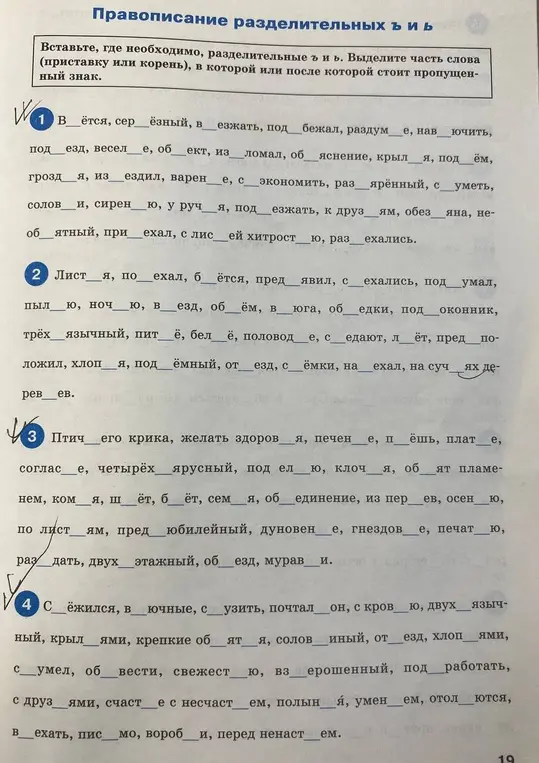 Правописание разделительных ъ и ь
Вставьте, где необходимо, разделительные ъ и ь. Выделите часть слова
(приставку или корень), в которой или после которой стоит пропущен-
ный знак.
1 В__ётся, сер__ёзный, в__езжать, под__бежал, раздум__е, нав__ючить,
под__езд, весел__е, об__ект, из__ломал, об__яснение, крыл__я, под__ём,
грозд__я, из__ездил, варен__е, с__экономить, раз__ярённый, с__уметь,
солов__и, сирен__ю, у руч__я, под__езжать, к друз__ям, обез__яна, не-
об__ятный, при__ехал, с лис__ей хитрост__ю, раз__ехались.
2 Лист__я, по__ехал, б__ётся, пред__явил, с__ехались, под__умал,
пыл__ю, ноч__ю, в__езд, об__ём, в__юга, об__едки, под__оконник,
трёх__язычный, пит__ё, бел__ё, половод__е, с__едают, л__ёт, пред__по-
ложил, хлоп__я, под__ёмный, от__езд, с__ёмки, на__ехал, на суч__ях де-
рев__ев.
3 Птич__его крика, желать здоров__я, печен__е, п__ёшь, плат__е,
соглас__е, четырёх__ярусный, под ел__ю, клоч__я, об__ят пламе-
нем, ком__я, ш__ёт, б__ёт, сем__я, об__единение, из пер__ев, осен__ю,
по лист__ям, пред__юбилейный, дуновен__е, гнездов__е, печат__ю,
раз__дать, двух__этажный, об__езд, мурав__и.
4 С__ёжился, в__ючные, с__узить, почтал__он, с кров__ю, двух__языч-
ный, крыл__ями, крепкие об__ят__я, солов__иный, от__езд, хлоп__ями,
с__умел, об__вести, свежест__ю, вз__ерошенный, под__работать,
с друз__ями, счаст__е с несчаст__ем, полын__я́, умен__ем, отол__ются,
в__ехать, пис__мо, вороб__и, перед ненаст__ем.
19